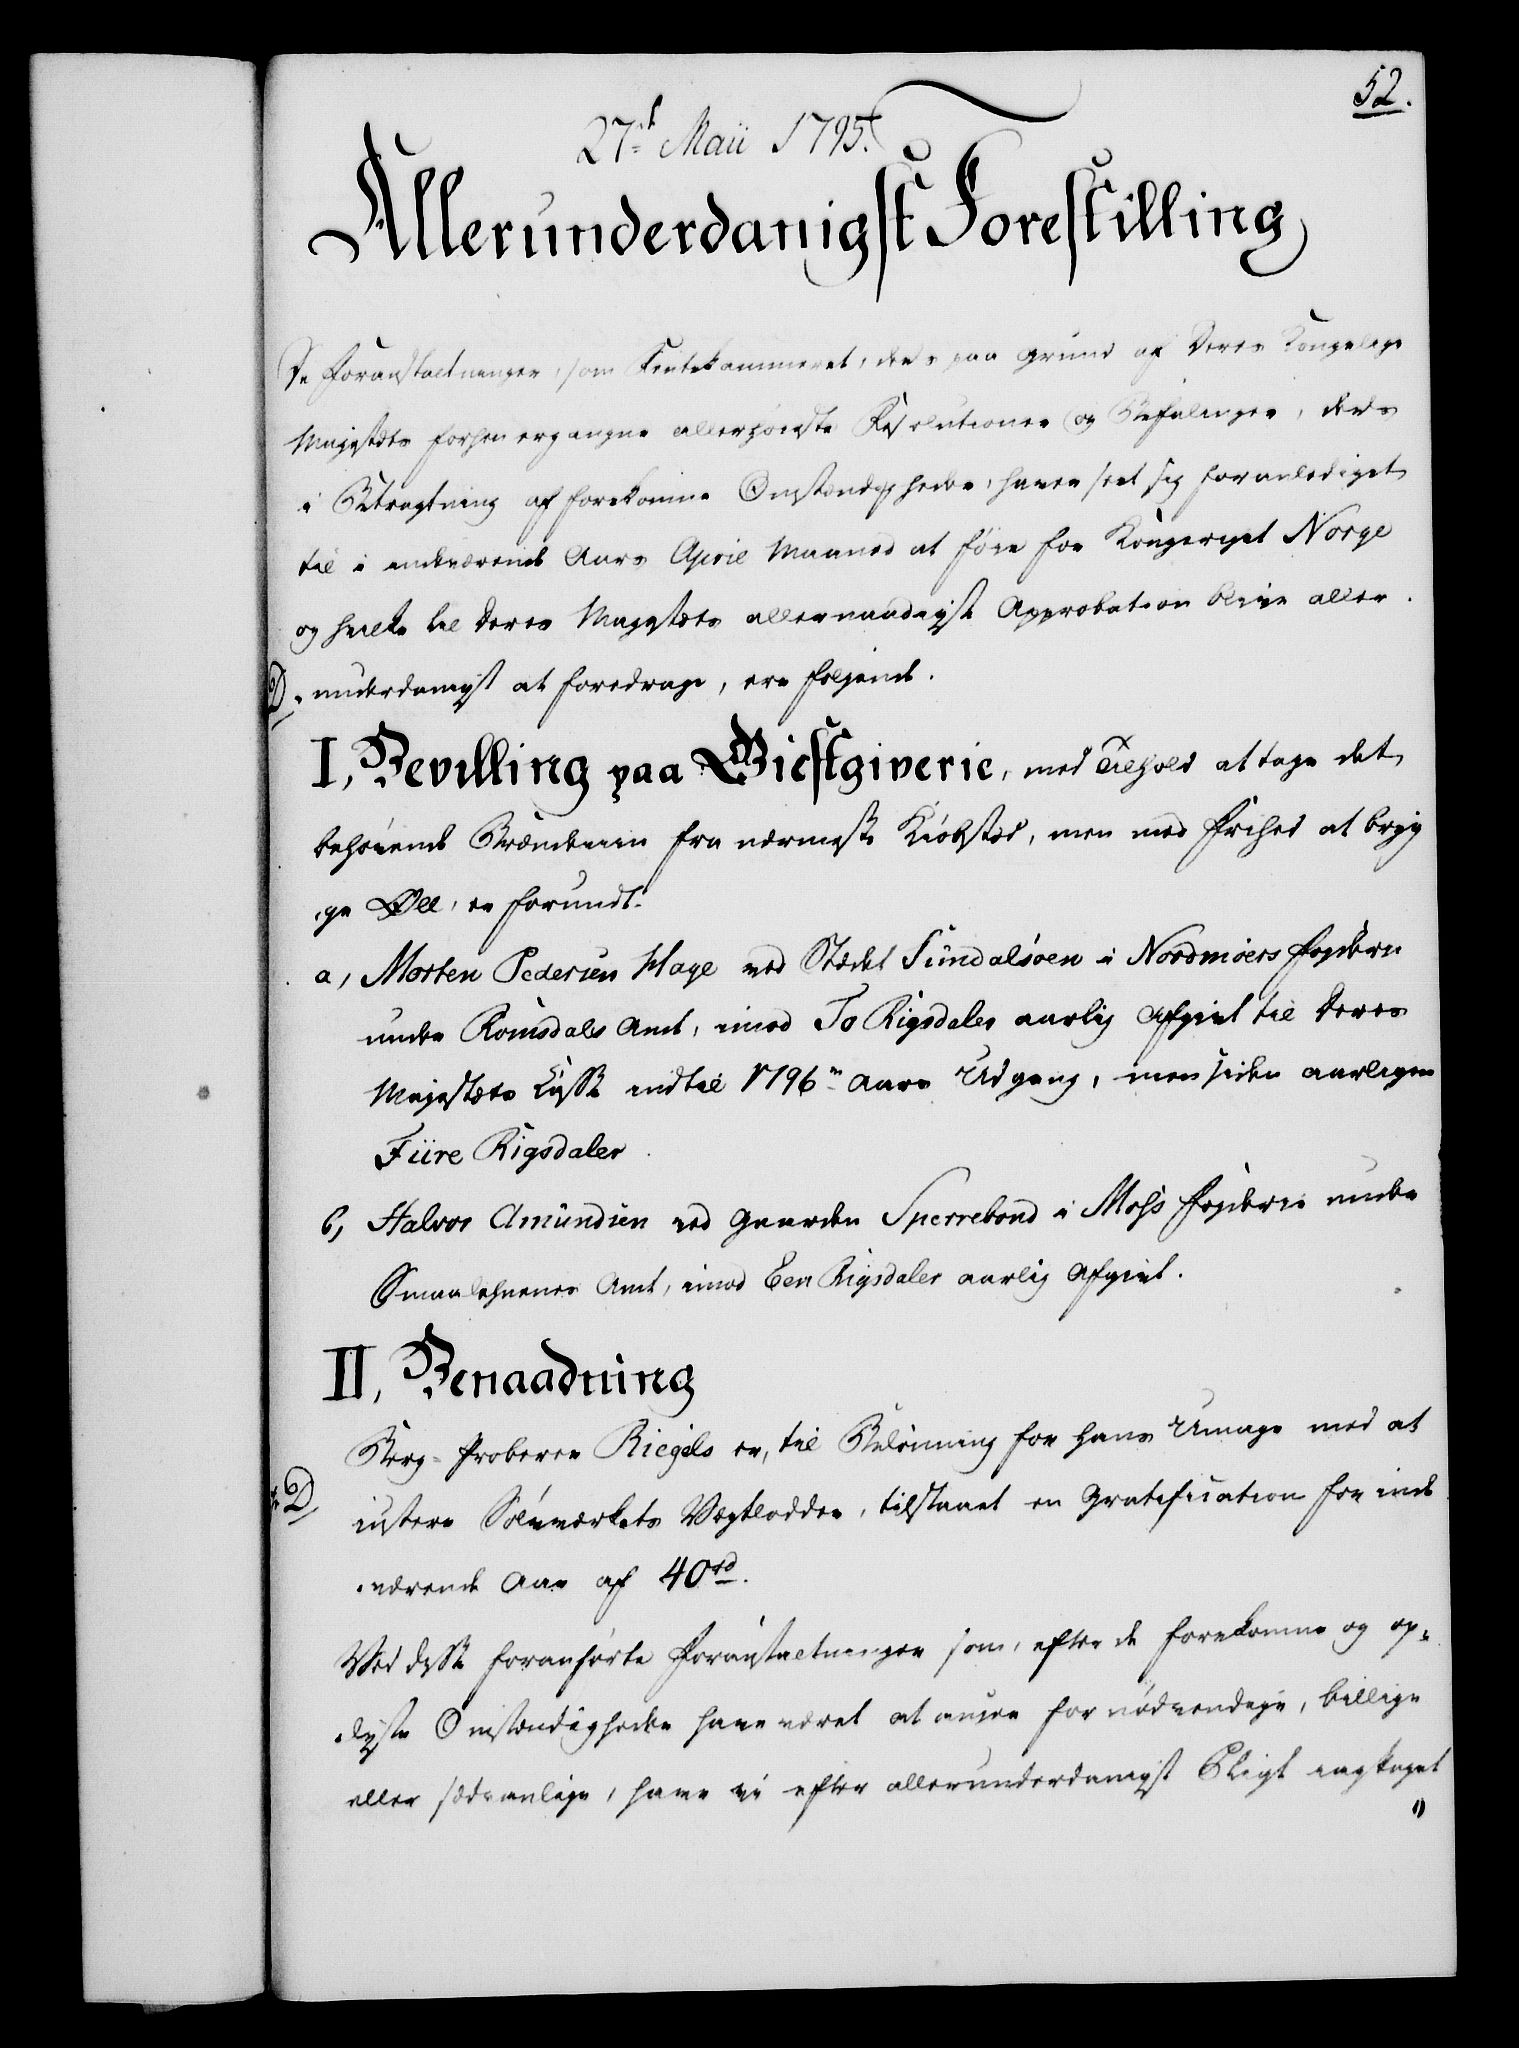 52.
27de Maii 1795.
Allerunderdanigst Forestilling
De Foranstaltninger, som Rentekammeret, deels paa Grund af Deres Kongelige
Majestæts forhen ergangne allerhøieste Resolutioner og Befalinger, deels
i Betragtning af forekomne Omstændigheder, haver seet sig foranlediget
til i indeværende Aars April Maaned at føie for Kongeriget Norge
og hvilke til Deres Majestæts allernaadigste Approbation blive aller-
D. underdanigst at foredrage, ere følgende.
I, Bevilling paa Giestgiverie, med Tilhold at tage det
behøvende Brændeviin fra nærmeste Kiøbsted, men med Frihed at bryg-
ge Øll, er forundt:
a, Morten Pedersen Hage ved Stædet Sundalsøen i Nordmøers Fogderie
under Romsdals Amt, imod To Rigsdaler aarlig Afgivt til Deres
Majestæts Casse indtil 1796de Aars Udgang, men siden aarligen
Fiire Rigsdaler.
b, Halvor Amundsen ved Gaarden Sperrebond i Moss Fogderie under
Smaalehnenes Amt, imod Een Rigsdaler aarlig Afgivt.
II, Benaadning
Berg-Proberer Riegels er, til Belønning for hans Umage med at
D, iustere Sølvverkets Vægtlodder, tilstaaet en Gratification for inde-
værende Aar af 40 rd.
Ved disse foranførte Foranstaltninger som, efter de forekomne og op-
lyste Omstændigheder have været at ansee for nødvendige, billige
eller sædvanlige, have vi efter allerunderdanigst Pligt iagttaget